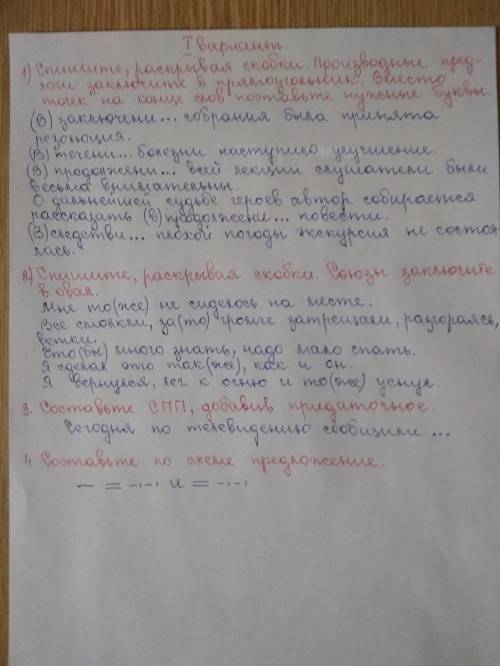 I вариант.
1) Спишите, раскрывая скобки. Производные пред-
логи заключите в прямоугольник. Вместо
точек на конце слов поставьте нужные буквы.
(В) заключени... собрания была принята
резолюция.
(В) течени... болезни наступило улучшение.
(В) продолжени... всей лекции слушатели были
весьма внимательны.
О дальнейшей судьбе героев автор собирается
рассказать (в) продолжени... повести.
(В) следстви... плохой погоды экскурсия не состоя-
лась.
2) Спишите, раскрывая скобки. Союзы заключите
в овал.
Мне то(же) не сиделось на месте.
Все смолкли, за(то) громче затрещали, разгораясь,
ветки.
Что(бы) много знать, надо мало спать.
Я сделал это так(же), как и он.
Я вернулся, лег к огню и то(же) уснул.
3. Составьте СПП, добавив придаточное.
Сегодня по телевидению сообщили ...
4. Составьте по схеме предложение.
— = -·-· и = -·-·